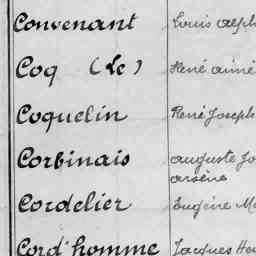 Convenant Louis
Coq (Le) René aimé
Coquelin René Joseph
Corbinais auguste
arsène
Cordelier Eugène
Cord'homme Jacques